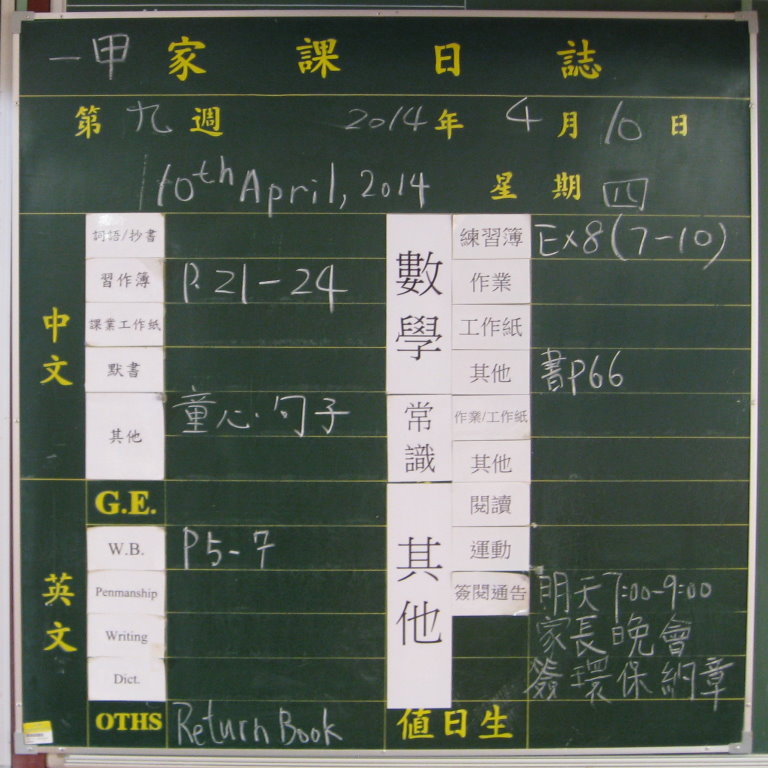 一甲 家課日誌
第九週 2014年 4月10日
10th April, 2014 星期四
中文
詞語/抄書
習作簿 P. 21-24
課業工作紙
默書
其他 童心·句子
英文
G.E.
W.B. P5-7
Penmanship
Writing
Dict.
OTHS Return Book
數學
練習簿 Ex8(7-10)
作業
工作紙
其他 書P66
常識
作業/工作紙
其他
其他
閱讀
運動
簽閱通告 明天7:00-9:00
家長晚會
簽環保納章
值日生